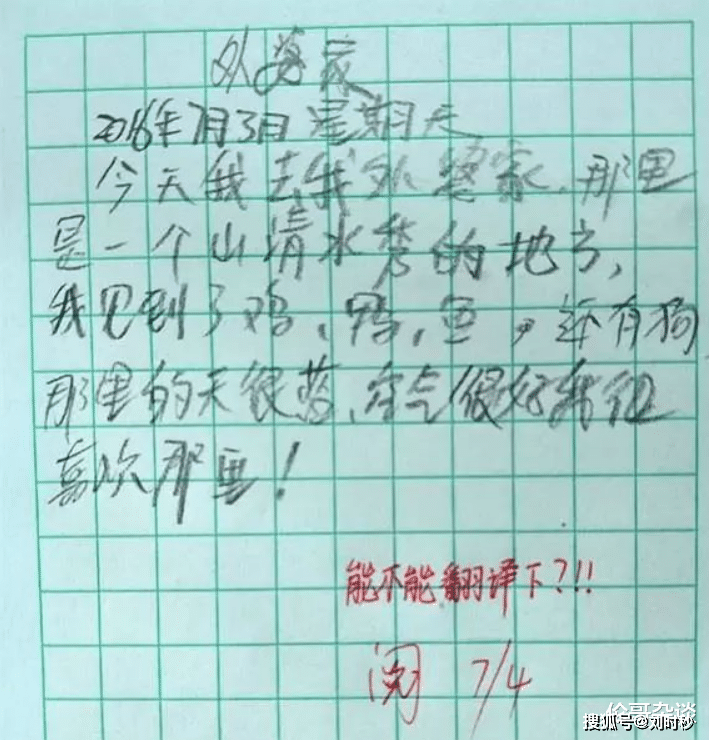 外婆家
2016年7月3日 星期天
今天我去我外婆家、那里
是一个山清水秀的地方,
我见到了鸡、鸭、鱼,还有狗
那里的天很蓝、空气很好我很
喜欢那里!
能不能翻译下?!!
阅 7/4
伦哥杂谈
搜狐号@刘时秒